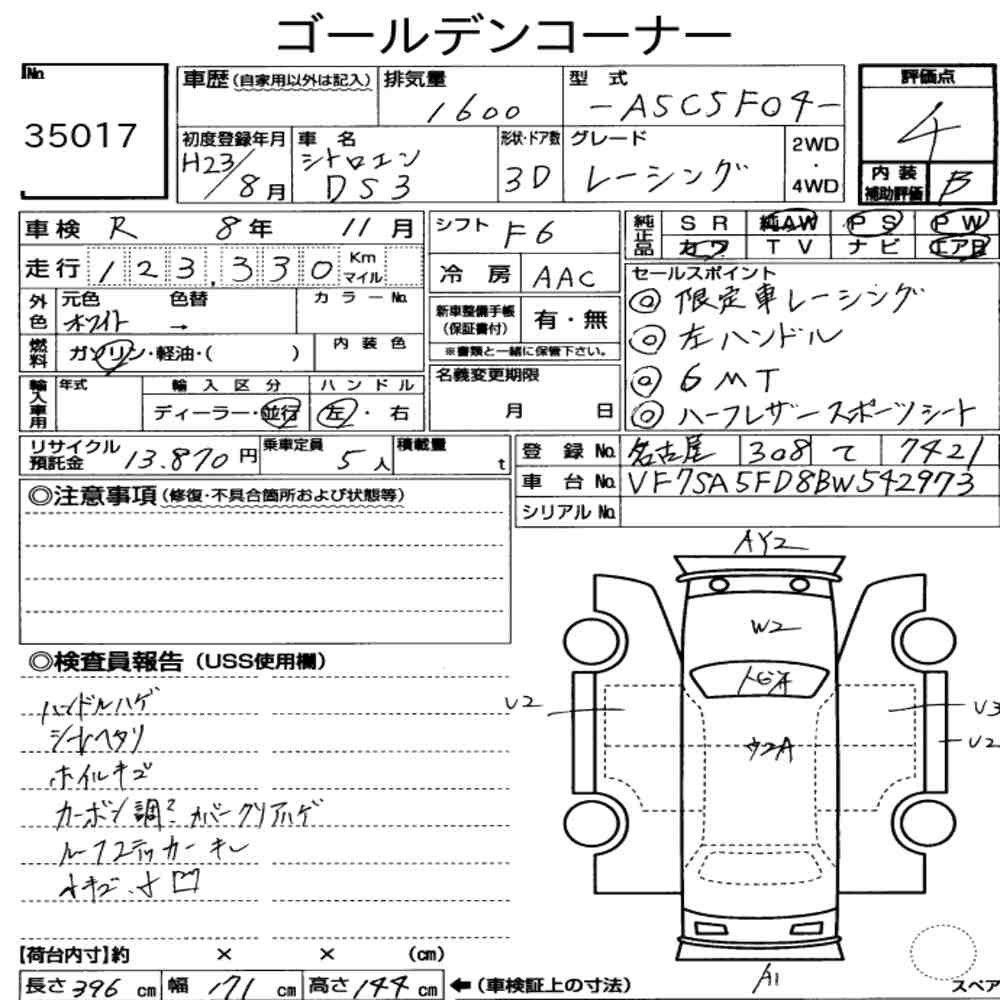 ゴールデンコーナー
No.
35017
車歴(自家用以外は記入)
排気量
1600
型式
-A5C5F04-
評価点
4
内装
補助評価
B
初度登録年月
H23/8月
車名
シトロエン
DS3
形状・ドア数
3D
グレード
レーシング
2WD
・
4WD
車検 R 8年 11月
走行 123,330 Km
マイル
外色
元色 色替
ホワイト →
カラーNo.
燃料
ガソリン・軽油・( )
内装色
輸入車用
年式
輸入区分
ディーラー・並行
ハンドル
左・右
シフト F6
冷房 AAC
新車整備手帳
(保証書付)
有・無
※書類と一緒に保管下さい。
名義変更期限
月 日
純正品
SR 純AW PS PW
カワ TV ナビ エアB
セールスポイント
◎ 限定車レーシング
◎ 左ハンドル
◎ 6MT
◎ ハーフレザースポーツシート
リサイクル
預託金 13.870円
乗車定員
5人
積載量
t
登録No. 名古屋 308 て 7421
車台No. VF7SA5FD8BW542973
シリアルNo.
◎注意事項(修復・不具合箇所および状態等)
◎検査員報告(USS使用欄)
ハンドルハゲ
シートヘタリ
ホイルキズ
カーボン調カバークリアハゲ
ルーフステッカーキレ
小キズ、小凹
AY2
W2
U2
U3
U2
A1
スペア
【荷台内寸】約 × × (cm)
長さ396cm 幅171cm 高さ144cm ←(車検証上の寸法)